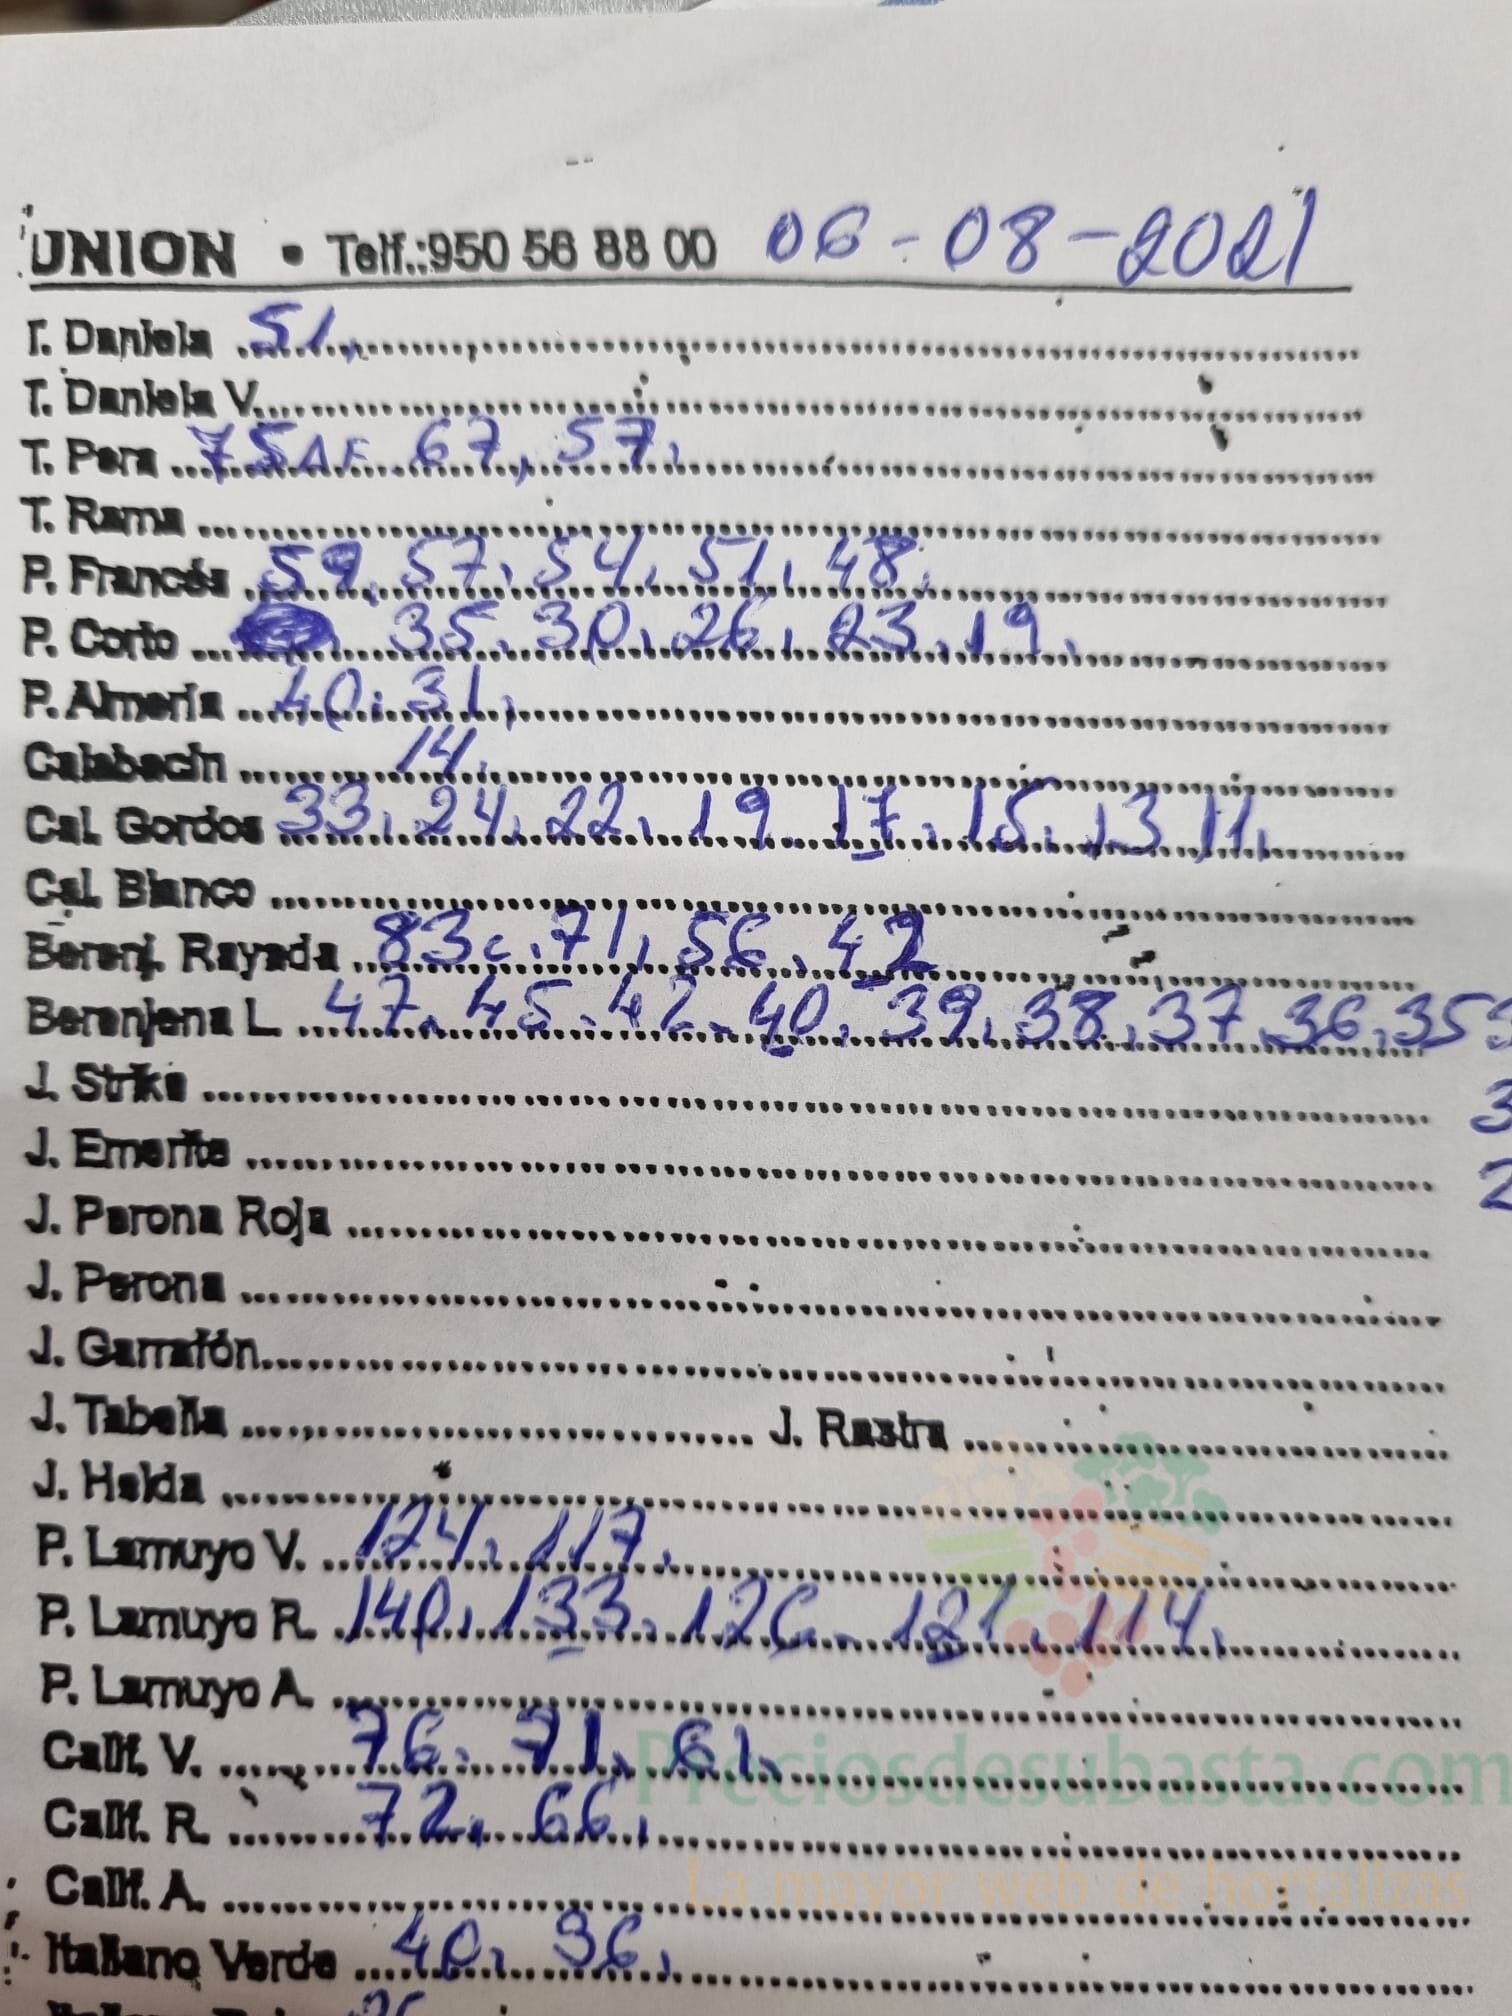 UNION • Telf.:950 56 88 00 06-08-2021
T. Daniela 51.
T. Daniela V.
T. Pera 75 67, 57.
T. Rama
P. Francés 59. 57. 54. 51. 48.
P. Corto 35. 30. 26. 23. 19.
P. Almería 40. 31.
Calabacín 14.
Cal. Gordos 33. 24. 22. 19. 17. 15. 13 11.
Cal. Blanco
Berenj. Rayada 83c. 71. 56. 42
Berenjena L. 47. 45. 42. 40. 39. 38. 37. 36. 35
J. Strike
J. Emerite
J. Perona Roja
J. Perona
J. Garrafón
J. Tabella J. Rastra
J. Helda
P. Lamuyo V. 124. 117.
P. Lamuyo R. 140. 133. 126. 121. 114.
P. Lamuyo A.
Calif. V. 76. 71. 61.
Preciosdesubasta.com
Calif. R. 72. 66.
La mayor web de hortalizas
Calif. A.
Italiano Verde 40. 36.